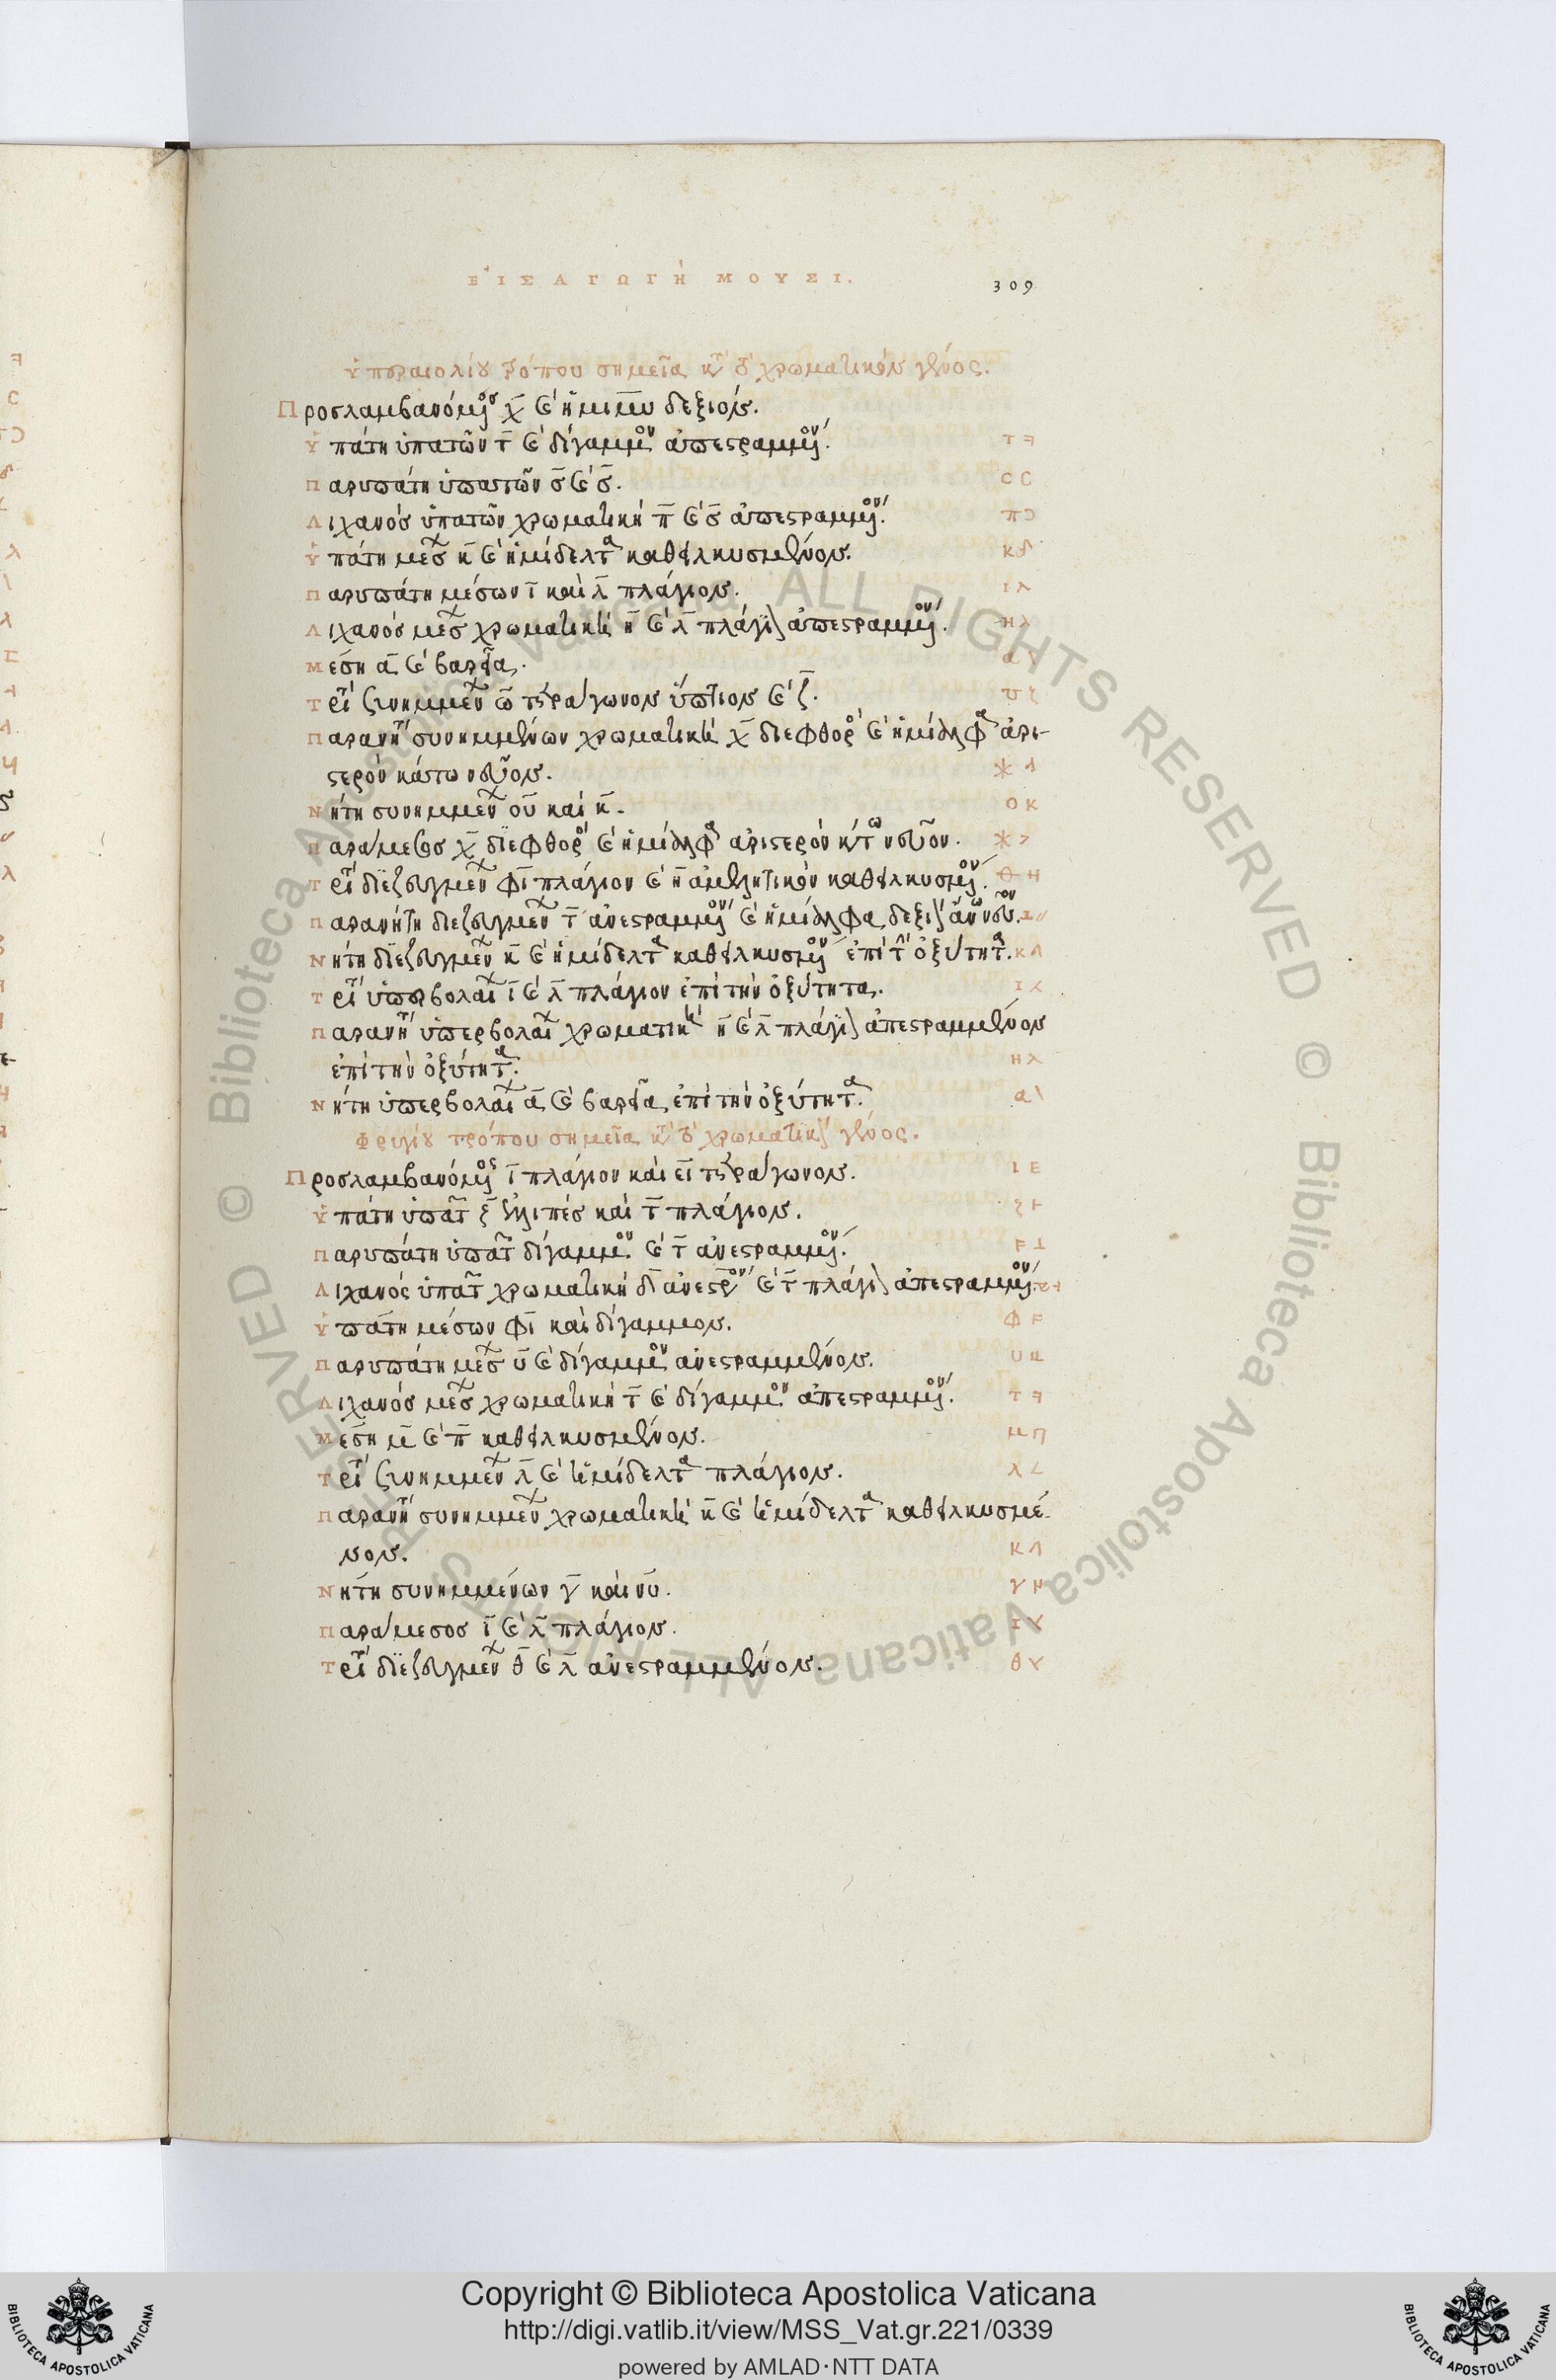 ΕἸΣΑΓΩΓῊ ΜΟΥΣΙ.
309
ὑπεραιολίου τρόπου σημεῖα κτ τὸ χρωματικὸν γένος.
Προσλαμβανόμενος χ̄ καὶ ἥμισυ δεξιόν.
ὑπάτη ὑπατῶν τ̄ καὶ δίγαμμον ἀπεστραμμένον. Τ ꟻ
παρυπάτη ὑπατῶν σ̄ καὶ σ̄. C C
λιχανὸς ὑπατῶν χρωματικὴ π̄ καὶ σ̄ ἀπεστραμμένον. π Ɔ
ὑπάτη μέσων κ̄ καὶ ἡμίδελτα καθειλκυσμένον.
παρυπάτη μέσων ῑ καὶ λ̄ πλάγιον.
λιχανὸς μέσων χρωματικὴ η̄ καὶ λ̄ πλάγιον ἀπεστραμμένον.
μέση ᾱ καὶ βαρεῖα. α \
τρίτη συνημμένων ω̄ τετράγωνον ὕπτιον καὶ ζ̄.
παρανήτη συνημμένων χρωματικὴ χ̄ διεφθορὸς καὶ ἡμίαλφα ἀρι-
στερὸν κάτω νεῦον.
νήτη συνημμένων οῡ καὶ κ̄. Ο Κ
παράμεσος χ̄ διεφθορὸς καὶ ἡμίαλφα ἀριστερὸν κάτω νεῦον. ⚹ >
τρίτη διεζευγμένων φῑ πλάγιον καὶ η̄ ἀμελητικὸν καθειλκυσμένον.
παρανήτη διεζευγμένων τ̄ ἀνεστραμμένον καὶ ἡμίαλφα δεξιὸν ἄνω νεῦον.
νήτη διεζευγμένων κ̄ καὶ ἡμίδελτα καθειλκυσμένον ἐπὶ τὴν ὀξύτητα.
τρίτη ὑπερβολαίων ῑ καὶ λ̄ πλάγιον ἐπὶ τὴν ὀξύτητα.
παρανήτη ὑπερβολαίων χρωματικὴ η̄ καὶ λ̄ πλάγιον ἀπεστραμμένον
ἐπὶ τὴν ὀξύτητα. Η λ
νήτη ὑπερβολαίων ᾱ καὶ βαρεῖα ἐπὶ τὴν ὀξύτητα. α \
Φρυγίου τρόπου σημεῖα κτ τὸ χρωματικὸν γένος.
Προσλαμβανόμενος ῑ πλάγιον καὶ εῑ τετράγωνον. Ι Ε
ὑπάτη ὑπάτων ξ̄ ἐλλιπὲς καὶ τ̄ πλάγιον.
παρυπάτη ὑπάτων δίγαμμον καὶ τ̄ ἀνεστραμμένον. Ϝ ⊥
λιχανὸς ὑπάτων χρωματικὴ δ̄ ἀνεστραμμένον καὶ τ̄ πλάγιον ἀπεστραμμένον.
ὑπάτη μέσων φῑ καὶ δίγαμμον. Φ Ϝ
παρυπάτη μέσων ῡ καὶ δίγαμμον ἀνεστραμμένον.
λιχανὸς μέσων χρωματικὴ τ̄ καὶ δίγαμμον ἀπεστραμμένον. Τ ꟻ
μέση μ̄ καὶ π̄ καθειλκυσμένον. μ Π
τρίτη συνημμένων λ̄ καὶ ἡμίδελτα πλάγιον. λ <
παρανήτη συνημμένων χρωματικὴ κ̄ καὶ ἡμίδελτα καθειλκυσμέ-
νον.
νήτη συνημμένων γ̄ καὶ νῡ. γ Ν
παράμεσος ῑ καὶ λ̄ πλάγιον.
τρίτη διεζευγμένων θ̄ καὶ λ̄ ἀνεστραμμένον. θ Υ
Copyright © Biblioteca Apostolica Vaticana
http://digi.vatlib.it/view/MSS_Vat.gr.221/0339
powered by AMLAD·NTT DATA
BIBLIOTECA APOSTOLICA VATICANA
BIBLIOTECA APOSTOLICA VATICANA
© Biblioteca Apostolica Vaticana ALL RIGHTS RESERVED © Biblioteca Apostolica Vaticana ALL RIGHTS RESERVED